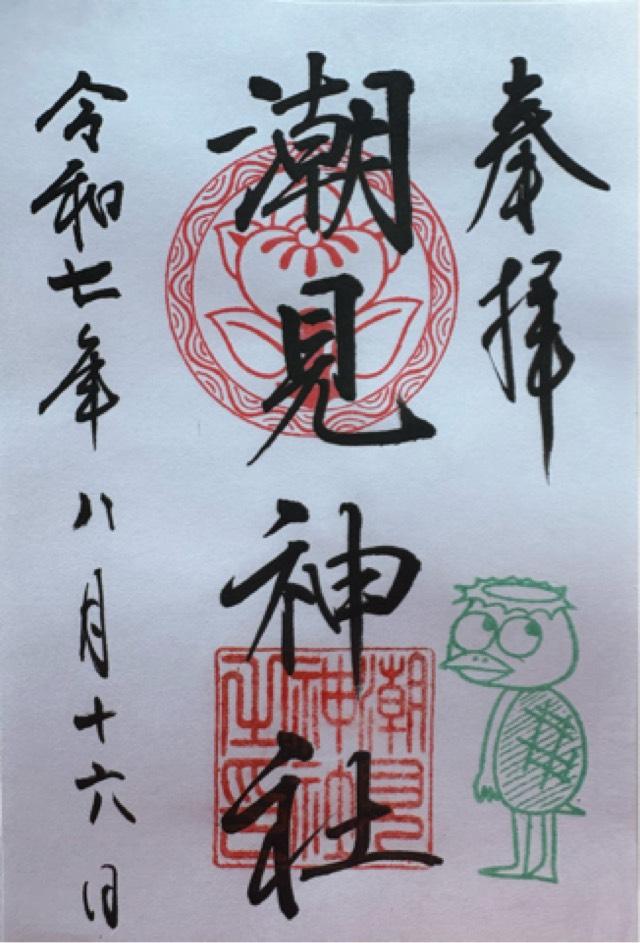 奉拝
潮見神社
潮見
神社
之印
令和七年八月十六日